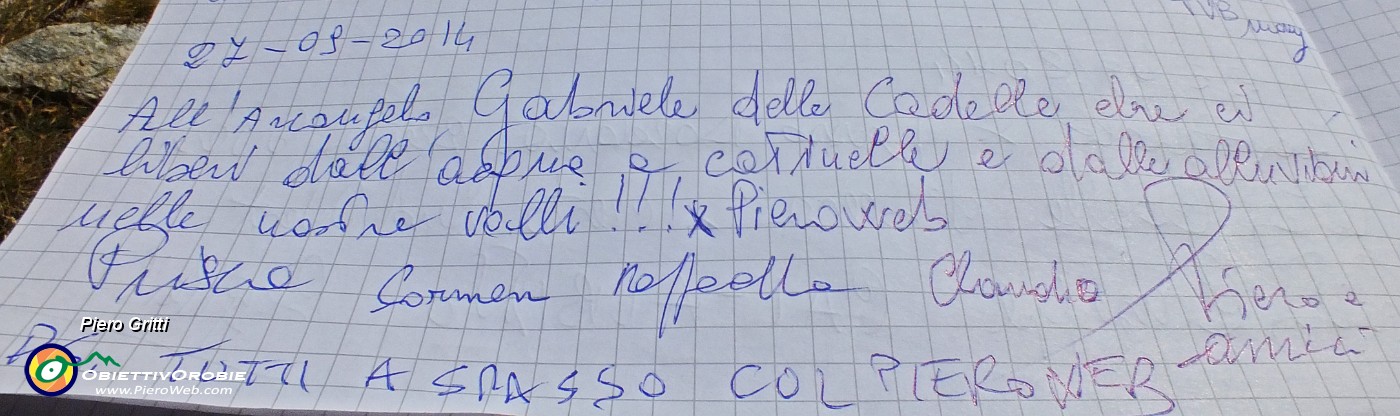 TVB
27-09-2014
All'Arcangelo Gabriele delle Cadelle che ci
liberi dall'acqua a catinelle e dalle alluvioni
nelle nostre valli!!! x Pieroweb
Carmen Raffaella Claudio Piero e
amici
Piero Gritti
TUTTI A SPASSO COL PIEROWEB
OBIETTIVOROBIE
www.PieroWeb.com